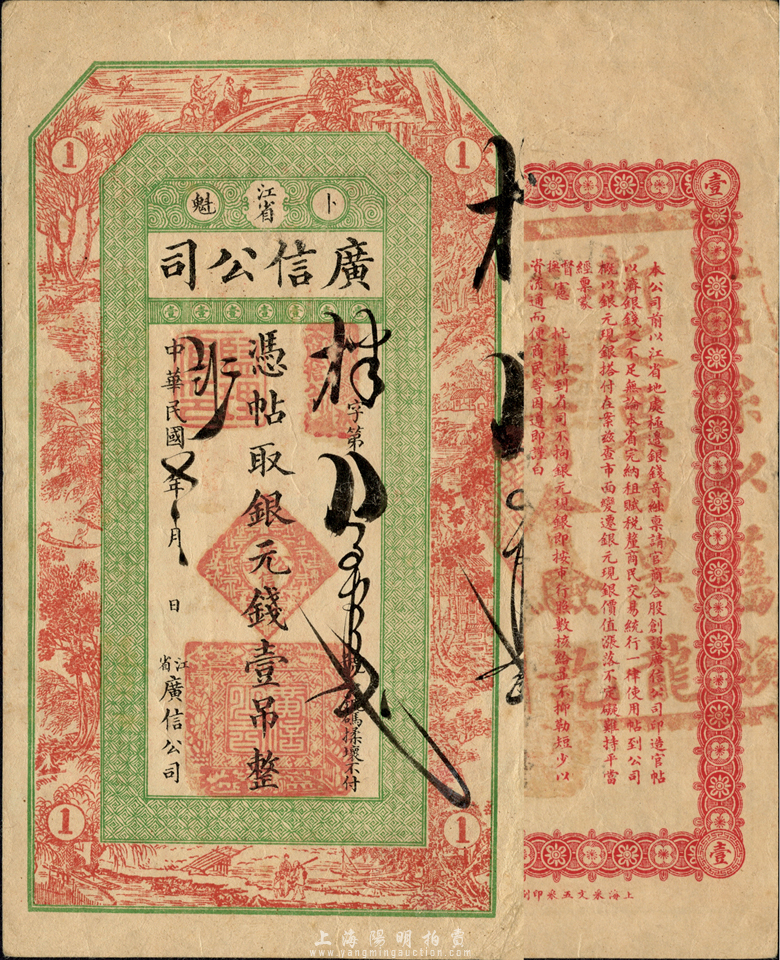 卜
江省
魁
廣信公司
壹壹壹壹壹壹
字第
憑帖取銀元錢壹吊整
中華民國
年
月
日
江省廣信公司
揉壞不付
1
1
1
1
壹
壹
本公司前以江省地處極邊銀錢奇絀稟請官商合股創設廣信公司印造官帖
以濟銀錢之不足無論本省完納租賦稅釐商民交易統行一律使用帖到公司
概以銀元現銀搭付在案茲查市面變遷銀元現銀價值漲落不定礙難持平當
經稟蒙
督撫憲
批准帖到公司不拘銀元現銀即按市行照數核給並不抑勒短少以
資流通而便商民等因遵即謹白
上海采文五彩印
上海陽明拍賣
www.yangmingauction.com